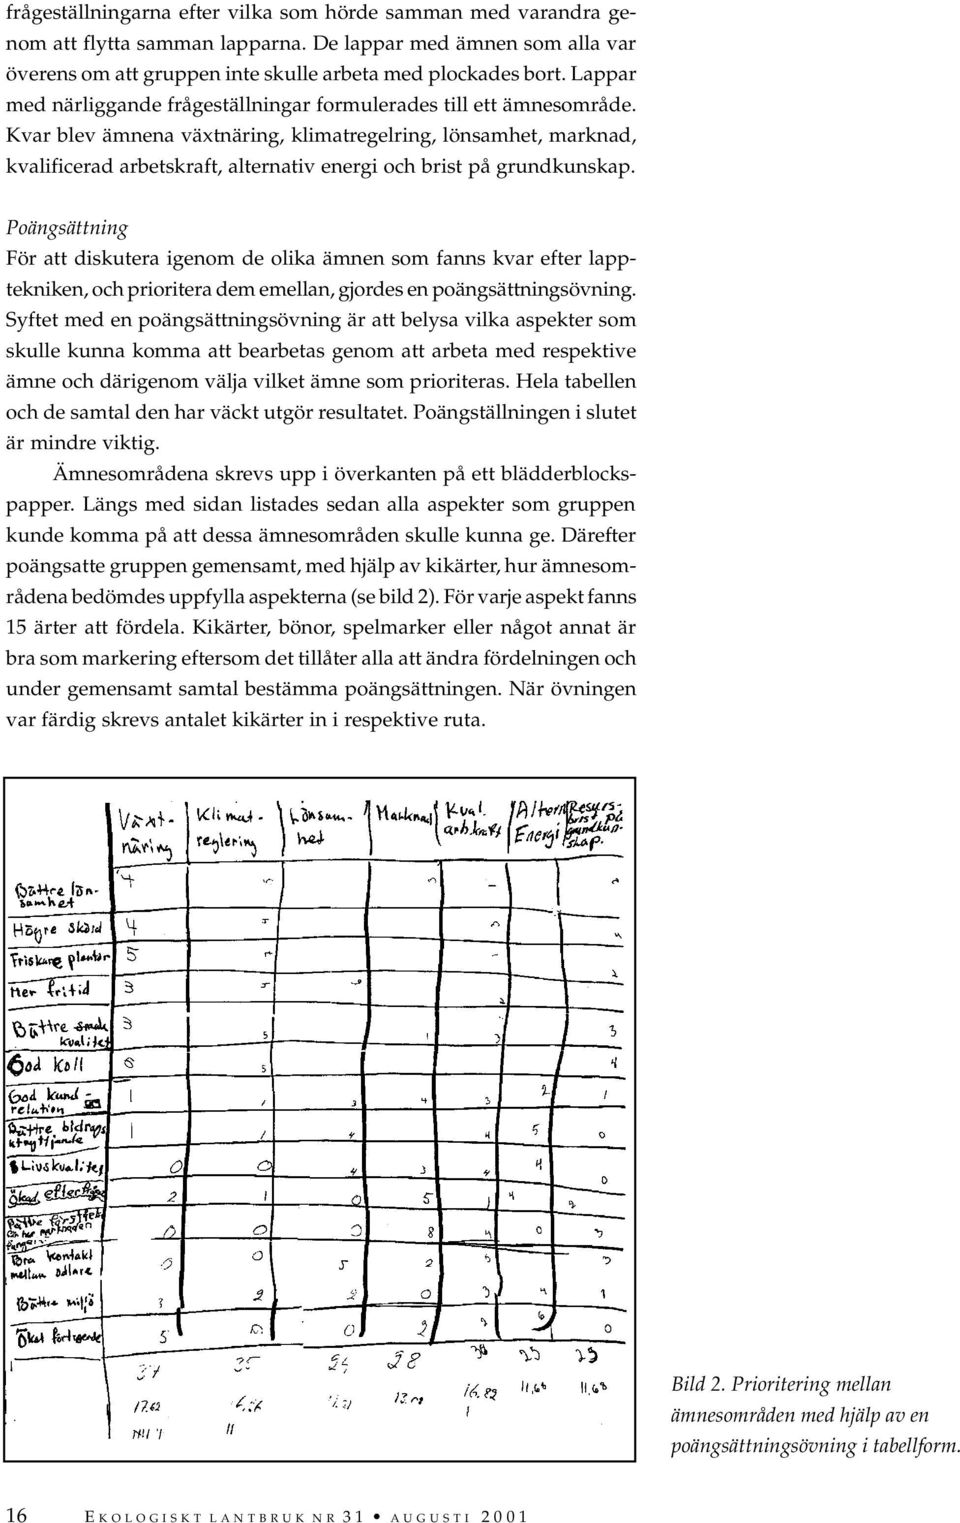 frågeställningarna efter vilka som hörde samman med varandra ge-
nom att flytta samman lapparna. De lappar med ämnen som alla var
överens om att gruppen inte skulle arbeta med plockades bort. Lappar
med närliggande frågeställningar formulerades till ett ämnesområde.
Kvar blev ämnena växtnäring, klimatregelring, lönsamhet, marknad,
kvalificerad arbetskraft, alternativ energi och brist på grundkunskap.
Poängsättning
För att diskutera igenom de olika ämnen som fanns kvar efter lapp-
tekniken, och prioritera dem emellan, gjordes en poängsättningsövning.
Syftet med en poängsättningsövning är att belysa vilka aspekter som
skulle kunna komma att bearbetas genom att arbeta med respektive
ämne och därigenom välja vilket ämne som prioriteras. Hela tabellen
och de samtal den har väckt utgör resultatet. Poängställningen i slutet
är mindre viktig.
Ämnesområdena skrevs upp i överkanten på ett blädderblocks-
papper. Längs med sidan listades sedan alla aspekter som gruppen
kunde komma på att dessa ämnesområden skulle kunna ge. Därefter
poängsatte gruppen gemensamt, med hjälp av kikärter, hur ämnesom-
rådena bedömdes uppfylla aspekterna (se bild 2). För varje aspekt fanns
15 ärter att fördela. Kikärter, bönor, spelmarker eller något annat är
bra som markering eftersom det tillåter alla att ändra fördelningen och
under gemensamt samtal bestämma poängsättningen. När övningen
var färdig skrevs antalet kikärter in i respektive ruta.
Växt- Klimat- Lönsam- Marknad Kval. Altern Resurs-
näring reglering het arb.kraft Energi brist på
grundkun-
skap.
Bättre lön- 4
samhet
Högre skörd 4
Friskare plantor 5
Mer fritid 3 2
Bättre smak 3 5 1 3 3
kvalitet
God koll 6 5 4
God kund- 1 1 3 4 3 2 1
relation
Bättre bidrags 1 1 4 4 5 0
utnyttjande
Livskvalitet 0 0 4 3 4 4 0
Ökad efterfrågan 2 1 0 5 1 4 2
0 0 0 8 4 0 3
Bra kontakt 0 0 5 2 5 3
mellan odlare
Bättre miljö 3 2 2 0 3 4 1
Ökat förtroende 5 0 0 2 2 6 0
37 35 24 28 25 25
17.62 16.82 11.68 11.68
Bild 2. Prioritering mellan
ämnesområden med hjälp av en
poängsättningsövning i tabellform.
16 EKOLOGISKT LANTBRUK NR 31 • AUGUSTI 2001